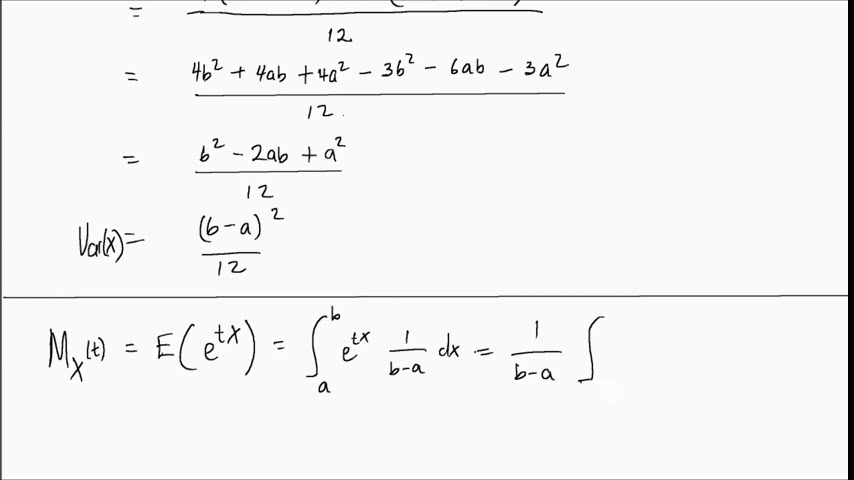 =
12
= 4b² + 4ab + 4a² − 3b² − 6ab − 3a² / 12
= b² − 2ab + a² / 12
Var(X) = (b−a)² / 12
M_X(t) = E(e^{tX}) = ∫_a^b e^{tx} 1/(b−a) dx = 1/(b−a) ∫